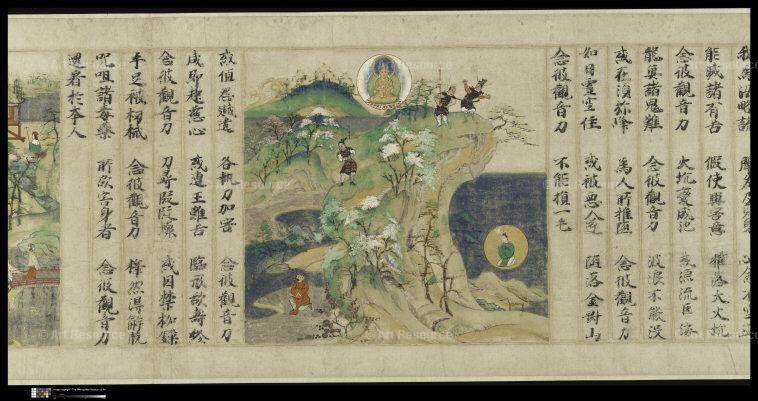 我為汝略說 聞名及見身 心念不空過
能滅諸有苦 假使興害意 推落大火坑
念彼觀音力 火坑變成池 或漂流巨海
龍魚諸鬼難 念彼觀音力 波浪不能沒
或在須弥峰 為人所推墮 念彼觀音力
如日虚空住 或被惡人逐 墮落金剛山
念彼觀音力 不能損一毛
或值怨賊遶 各執刀加害 念彼觀音力
咸即起慈心 或遭王難苦 臨刑欲壽終
念彼觀音力 刀尋段段壞 或囚禁枷鎖
手足被杻械 念彼觀音力 釋然得解脫
呪咀諸毒藥 所欲害身者 念彼觀音力
還著於本人
© Art Resource